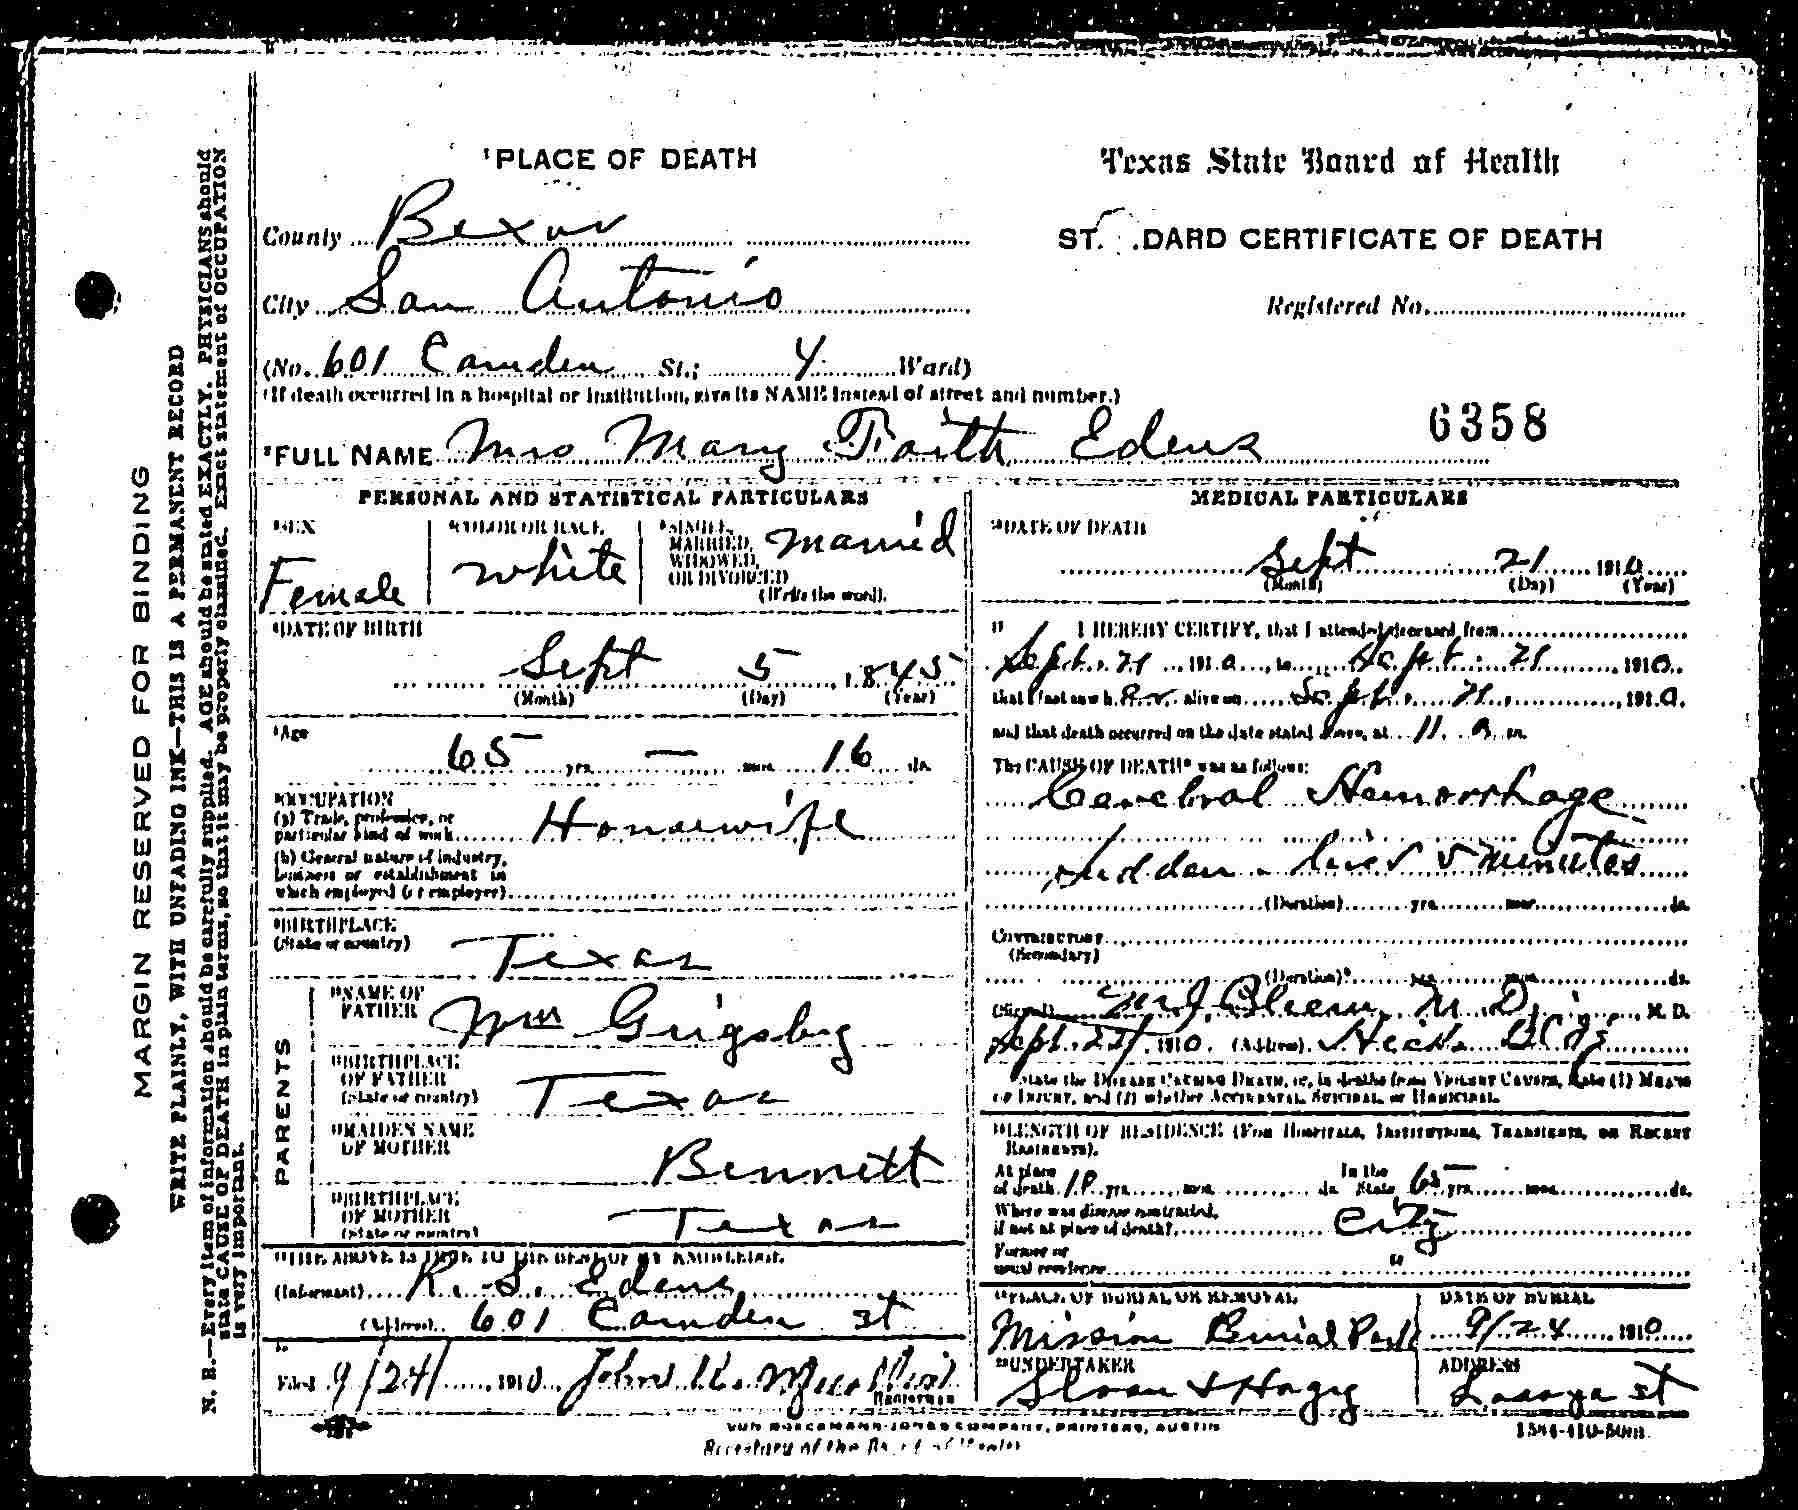 MARGIN RESERVED FOR BINDING
WRITE PLAINLY, WITH UNFADING INK—THIS IS A PERMANENT RECORD
N. B.—Every item of information should be carefully supplied. AGE should be stated EXACTLY. PHYSICIANS should
state CAUSE OF DEATH in plain terms, so that it may be properly classified. Exact statement of OCCUPATION
is very important.
1PLACE OF DEATH
County Bexar
City San Antonio
(No. 601 Camden St.; 4 Ward)
(If death occurred in a hospital or institution, give its NAME instead of street and number.)
Texas State Board of Health
ST DARD CERTIFICATE OF DEATH
Registered No.
6358
2FULL NAME Mrs Mary Faith Edens
PERSONAL AND STATISTICAL PARTICULARS
3SEX
Female
4COLOR OR RACE
White
5SINGLE,
MARRIED,
WIDOWED,
OR DIVORCED
(Write the word).
Married
6DATE OF BIRTH
Sept 5, 1845
(Month) (Day) (Year)
7Age
65 yrs. — mos. 16 ds.
8OCCUPATION
(a) Trade, profession, or
particular kind of work Housewife
(b) General nature of industry,
business or establishment in
which employed (or employer)
9BIRTHPLACE
(State or country) Texas
PARENTS
10NAME OF
FATHER Wm Grigsby
11BIRTHPLACE
OF FATHER
(State or country) Texas
12MAIDEN NAME
OF MOTHER Bennett
13BIRTHPLACE
OF MOTHER
(State or country) Texas
14THE ABOVE IS TRUE TO THE BEST OF MY KNOWLEDGE.
(Informant) R. S. Edens
(Address) 601 Camden st
Filed 9/24/, 1910 John K.
Registrar
MEDICAL PARTICULARS
16DATE OF DEATH
Sept 21 1910
(Month) (Day) (Year)
17 I HEREBY CERTIFY, that I attended deceased from
Sept. 21, 1910, to Sept. 21, 1910.
that I last saw her alive on Sept. 21, 1910.
and that death occurred on the date stated above, at 11 a m.
The CAUSE OF DEATH* was as follows:
Cerebral Hemorrhage
Sudden - lived 5 minutes
(Duration) yrs. mos. ds.
CONTRIBUTORY
(Secondary)
(Duration) yrs. mos. ds.
(Signed) M. J. Bliem, M. D., M. D.
Sept 22/, 1910. (Address) Hicks Bldg
*State the DISEASE CAUSING DEATH, or, in deaths from VIOLENT CAUSES, state (1) MEANS
OF INJURY, and (2) whether ACCIDENTAL, SUICIDAL, or HOMICIDAL.
18LENGTH OF RESIDENCE (FOR HOSPITALS, INSTITUTIONS, TRANSIENTS, OR RECENT
RESIDENTS).
At place
of death yrs. mos. ds. In the State 65 yrs. mos. ds.
Where was disease contracted,
if not at place of death? City
Former or
usual residence "
19PLACE OF BURIAL OR REMOVAL
Mission Burial Park
DATE OF BURIAL
9/24 1910
20UNDERTAKER
Sloan & Hagy
ADDRESS
Losoya st
VON BOECKMANN-JONES COMPANY, PRINTERS, AUSTIN
Secretary of the Board of Health
1584-410-50m